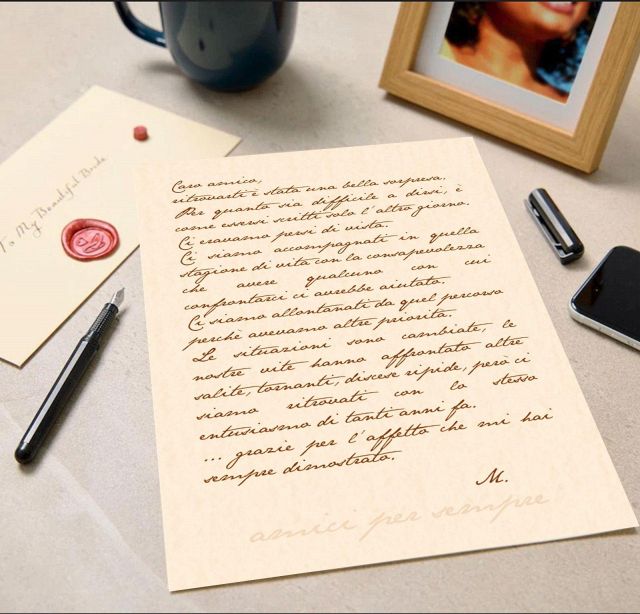 To My Beautiful Bride
Caro amico,
ritrovarti è stata una bella sorpresa.
Per quanto sia difficile a dirsi, è
come essersi scritti solo l'altro giorno.
Ci eravamo persi di vista.
Ci siamo accompagnati in quella
stagione di vita con la consapevolezza
che avere qualcuno con cui
confrontarci ci avrebbe aiutato.
Ci siamo allontanati da quel percorso
perchè avevamo altre priorità.
Le situazioni sono cambiate, le
nostre vite hanno affrontato altre
salite, tornanti, discese ripide, però ci
siamo ritrovati con lo stesso
entusiasmo di tanti anni fa.
... grazie per l'affetto che mi hai
sempre dimostrato.
M.
amici per sempre